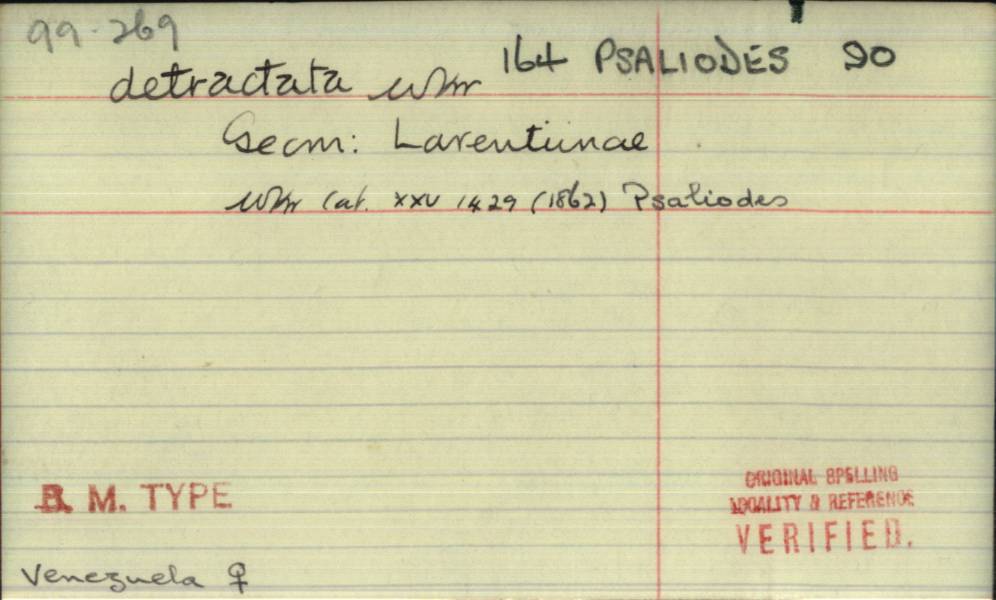 99-269
164 PSALIODES 90
detractata Wkr
Geom: Larentiinae
Wkr Cat. XXV 1429 (1862) Psaliodes
B. M. TYPE
ORIGINAL SPELLING
LOCALITY & REFERENCE
VERIFIED.
Venezuela ♀